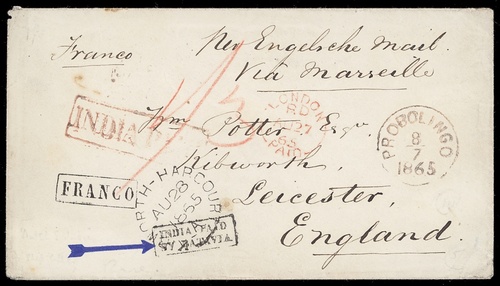 Franco
Per Engelsche Mail.
Via Marseille
INDIA
1/3
LONDON
RD
27
65
PAID
Wm Potter Esqr.
PROBOLINGO
8/7
1865
Kibworth,
FRANCO
AU 28
Leicester,
INDIA PAID
England.